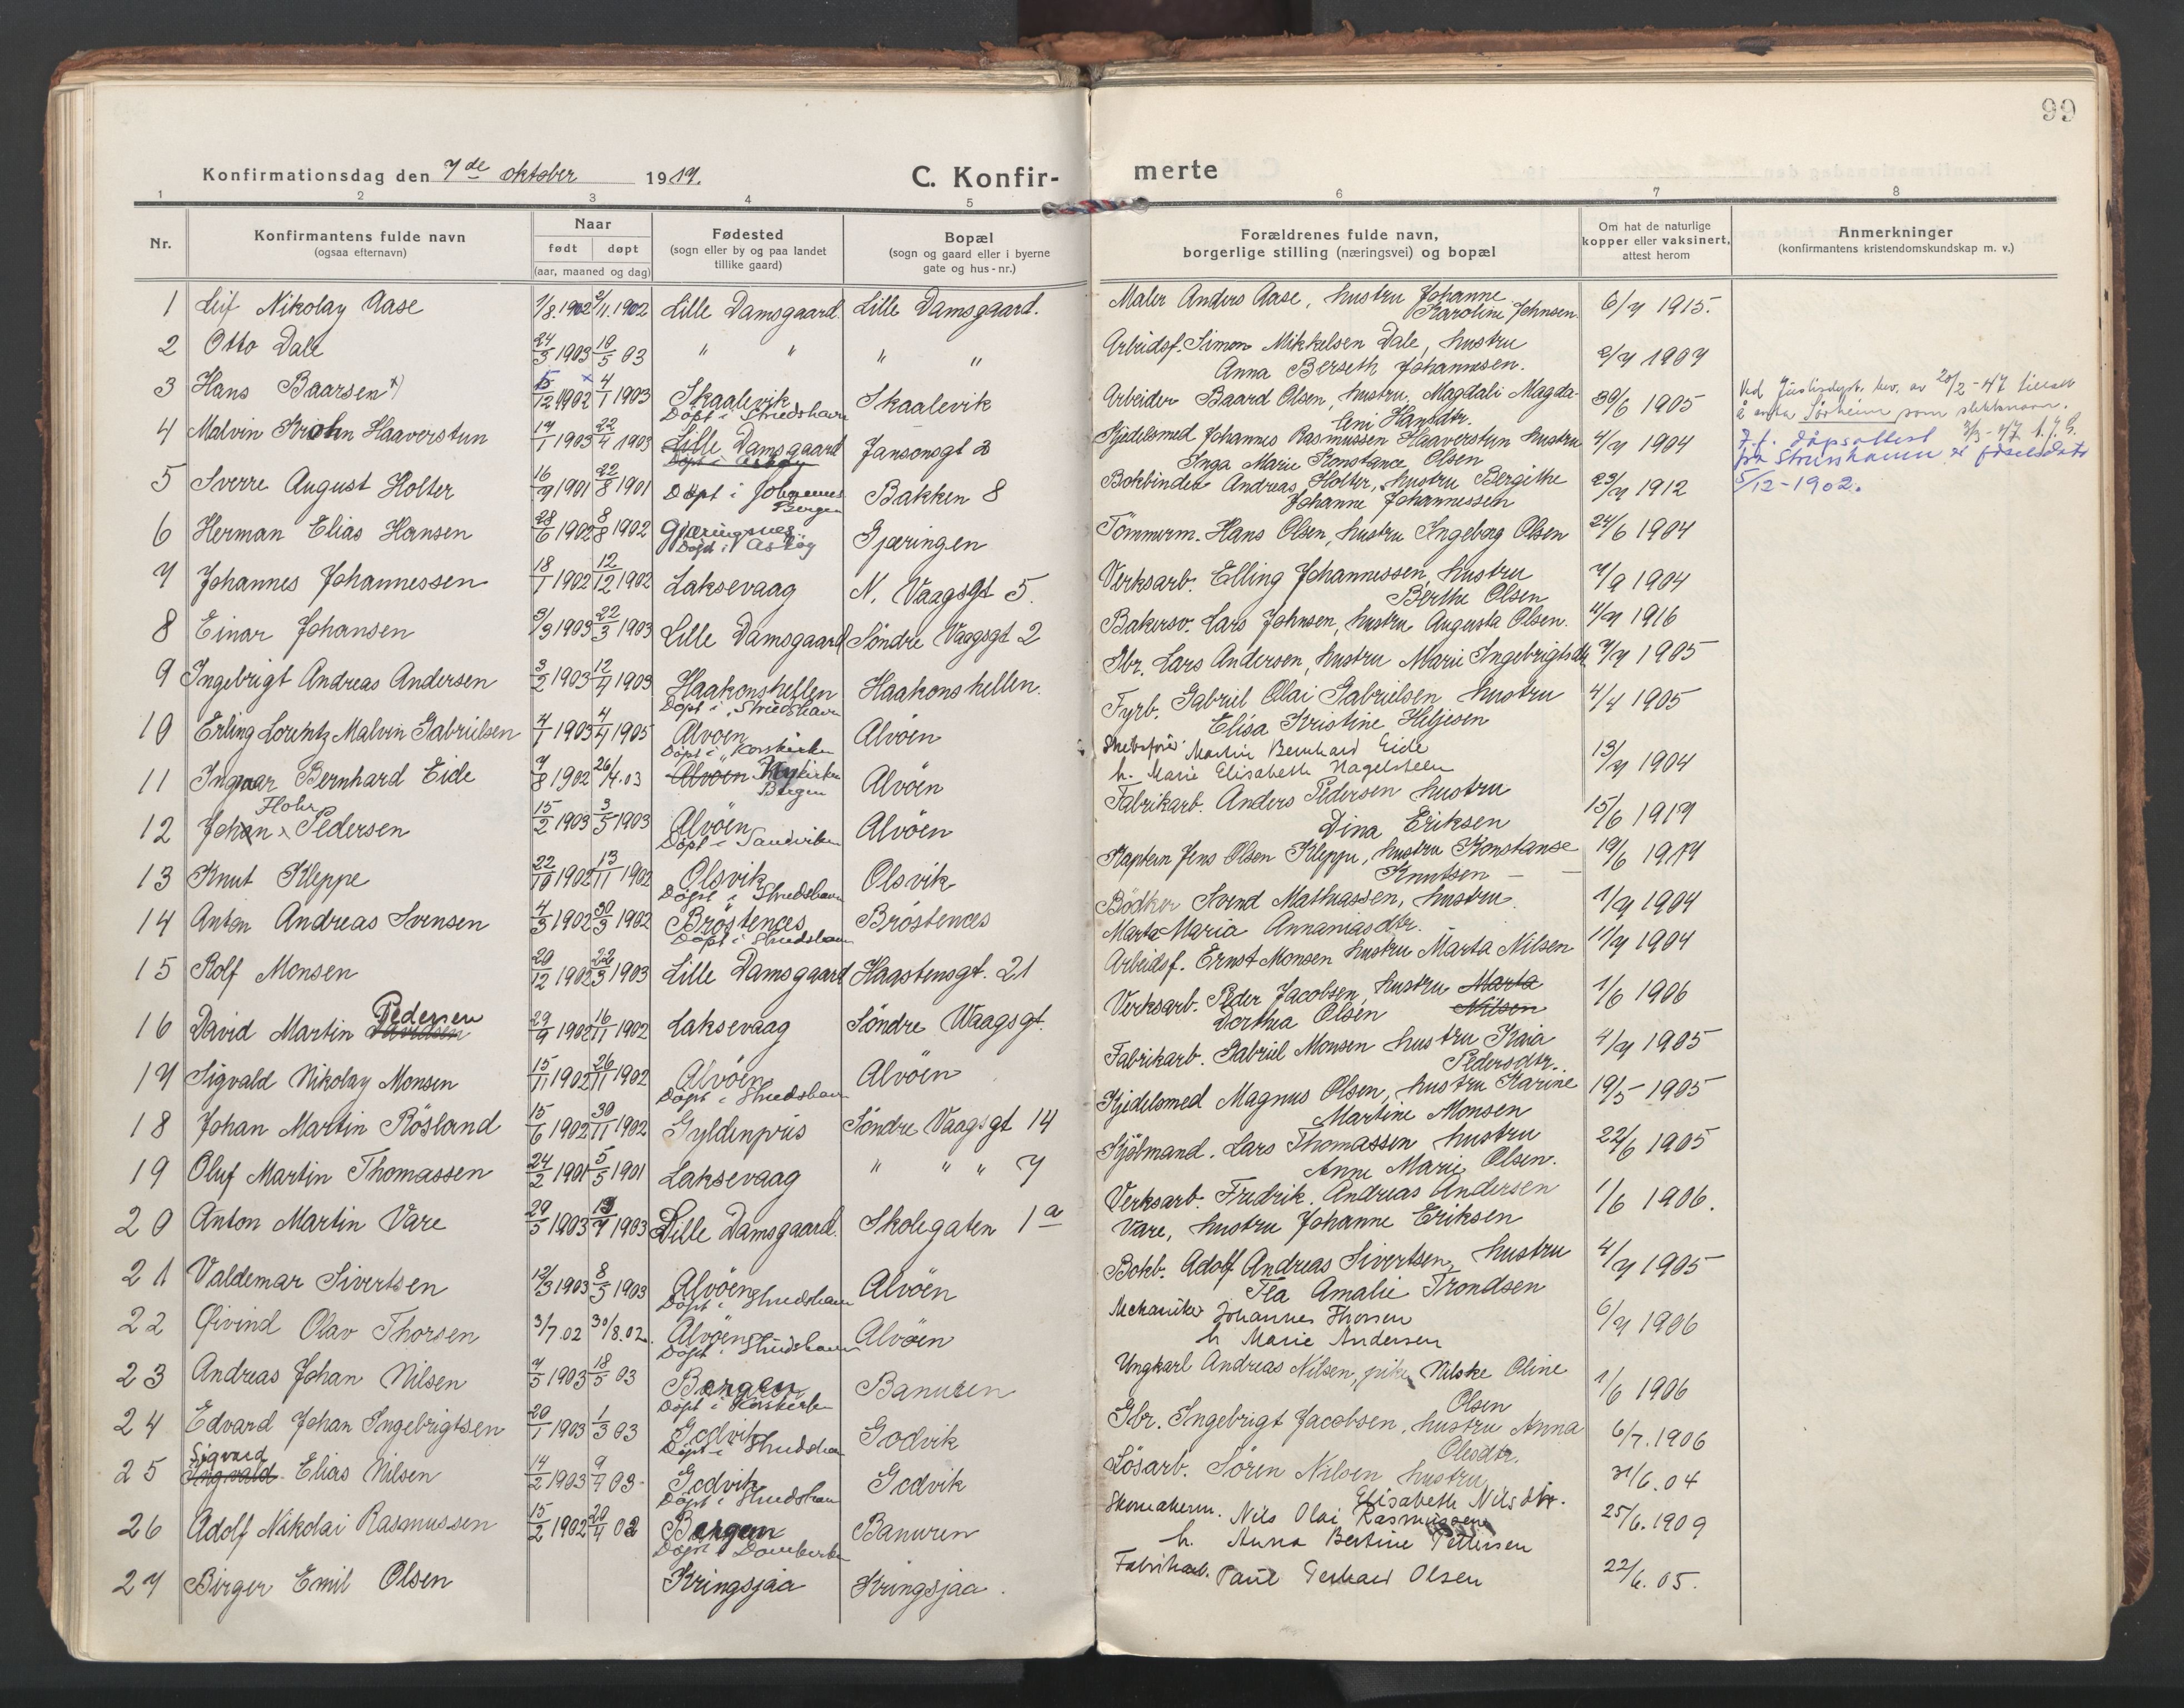 99
Konfirmationsdag den 7de oktober 1917.
C. Konfir-
merte
1 2 3 4 5 6 7 8
Nr.
Konfirmantens fulde navn
(ogsaa efternavn)
Naar
født døpt
(aar, maaned og dag)
Fødested
(sogn eller by og paa landet
tillike gaard)
Bopæl
(sogn og gaard eller i byerne
gate og hus-nr.)
Forældrenes fulde navn,
borgerlige stilling (næringsvei) og bopæl
Om hat de naturlige
kopper eller vaksinert,
attest herom
Anmerkninger
(konfirmantens kristendomskundskap m. v.)
1 Leif Nikolay Aase 1/8.1902 2/11.1902 Lille Damsgaard. Lille Damsgaard. Maler Anders Aase, hustru Johanne 6/7 1915.
Karoline Johnsen.
2 Otto Dale 24/3 1903 10/5 03 " " " " Arbeidsf. Simon Mikkelsen Dale, hustru 2/7 1907
Anna Berseth Johannesen.
3 Hans Baarsen x) 15/12 1902 x 4/1 1903 Skaalevik Skaalevik Arbeider Baard Olsen, hustru Magdali Magda- 30/6 1905
Döbt i Strudshavn
leni Hansdtr.
Ved Justisdept. bev. av 20/2-47 tillatt
å anta Sörheim som slektsnavn.
7/3-47
4 Malvin Krohn Haaverstun 17/1 1903 22/4 1903 Lille Damsgaard Jansonsgt 3 Kjedelsmed Johannes Rasmussen Haaverstun hustru 4/7 1904
Döpt i Askøy
Inga Marie Konstance Olsen
I fl. dåpsattest
fra Strusshamn er fødselsdato
5/12-1902.
5 Sverre August Holter 16/7 1901 22/8 1901 Döpt i Johannes Bakken 8 Bokbinder Andreas Holter, hustru Bergithe 23/7 1912
Bergen
Johanne Johannessen
6 Herman Elias Hansen 28/6 1902 8/8 1902 Gjæringnes Gjæringen Tömmerm. Hans Olsen, hustru Ingeborg Olsen 24/6 1904
Döpt i Asköy
7 Johannes Johannessen 18/1 1902 12/12 1902 Laksevaag N. Vaagsgt 5. Verksarb. Elling Johannessen, hustru 7/9 1904
Berthe Olsen
8 Einar Johansen 3/3 1903 22/3 1903 Lille Damsgaard Söndre Vaagsgt 2 Bakersv. Lars Johnsen, hustru Augusta Olsen. 4/7 1916
9 Ingebrigt Andreas Andersen 3/2 1903 12/4 1903 Haakonshellen Haakonshellen. Gbr. Lars Andersen, hustru Marie Ingebrigtsdtr 7/7 1905
Döpt i Strudshavn
10 Erling Lorentz Malvin Gabrielsen 4/1 1903 4/4 1905 Alvöen Alvöen Fyrb. Gabriel Olai Gabrielsen hustru 4/4 1905
Döpt i Korskirken
Elisa Kristine Hiljesen
11 Ingvar Bernhard Eide 7/8 1902 26/4.03 Alvöen Nykirken Alvöen Martin Bernhard Eide 13/7 1904
Bergen
h. Marie Elisabeth Hagelsteen
Flohr
12 Johan x Pedersen 15/2 1903 3/5 1903 Alvöen Alvöen Fabrikarb. Anders Pedersen hustru 15/6 1917
Döpt i Sandviken
Dina Eriksen
13 Knut Kleppe 22/10 1902 13/11 1902 Olsvik Olsvik Kaptein Jens Olsen Kleppe, hustru Konstanse 19/6 1917
Döpt i Strudshavn
Knutsen
14 Anton Andreas Svensen 4/3 1902 30/3 1902 Bröstenæs Bröstenæs Bödker Svend Mathiassen, hustru 1/7 1904
Döpt i Strudshavn
Marta Maria Annaniasdtr.
15 Rolf Monsen 20/12 1902 22/3 1903 Lille Damsgaard Haastensgt. 21 Arbeidsf. Ernst Monsen hustru Marta Nilsen 11/7 1904
Pedersen
16 David Martin Davidsen 29/9 1902 16/11 1902 Laksevaag Söndre Waagsgt. Verksarb. Peder Jacobsen, hustru Marta 1/6 1906
Dorthea Olsen Nilsen
17 Sigvald Nikolay Monsen 15/11 1902 26/11 1902 Alvöen Alvöen Fabrikarb. Gabriel Monsen hustru Kaia 4/7 1905
Döpt i Strudshavn
Pedersdtr.
18 Johan Martin Rösland 15/6 1902 30/11 1902 Gyldenpris Söndre Vaagsgt 14 Kjedelsmed Magnus Olsen, hustru Karine 19/5 1905
Martine Monsen
19 Oluf Martin Thomassen 24/2 1901 5/5 1901 Laksevaag " " " 7 Kjölmand. Lars Thomassen hustru 22/6 1905
Anne Marie Olsen.
20 Anton Martin Vare 29/5 1903 19/7 1903 Lille Damsgaard. Skolegaten 1a Verksarb. Fredrik Andreas Andersen 1/6 1906.
Vare, hustru Johanne Eriksen
21 Valdemar Sivertsen 12/3 1903 8/5 1903 Alvöen Alvöen Bokb. Adolf Andreas Sivertsen, hustru 4/7 1905
Döpt i Strudshavn
Tea Amalie Trondsen
22 Öivind Olav Thorsen 3/7.02 30/8.02. Alvöen Alvöen Mekaniker Johannes Thorsen 6/7 1906
Döpt i Strudshavn
h Marie Andersen
23 Andreas Johan Nilsen 7/5 1903 18/5 03 Bergen Banuren Ungkarl Andreas Nilsen, pike Nilske Oline 1/6 1906
Döpt i Korskirken
Olsen
24 Edvard Johan Ingebrigtsen 20/1 1903 1/3 03 Godvik Godvik Gbr. Ingebrigt Jacobsen, hustru Anna 6/7.1906
Döpt i Strudshavn
Olesdtr.
Sigvard
25 Ingvald Elias Nilsen 14/2 1903 9/4 03 Godvik Godvik Lösarb. Sören Nilsen hustru 21/6.04
Döpt i Strudshavn
Elisabeth Nilsdtr.
26 Adolf Nikolai Rasmussen 15/2 1902 20/4 02 Bergen Banuren Skomakerm. Nils Olai Rasmussen 25/6.1909
Döpt i Domkirken
h. Anna Bertine Pettersen
27 Birger Emil Olsen Kringsjaa Kringsjaa. Fabrikarb. Paul Gerhard Olsen 22/6.05.